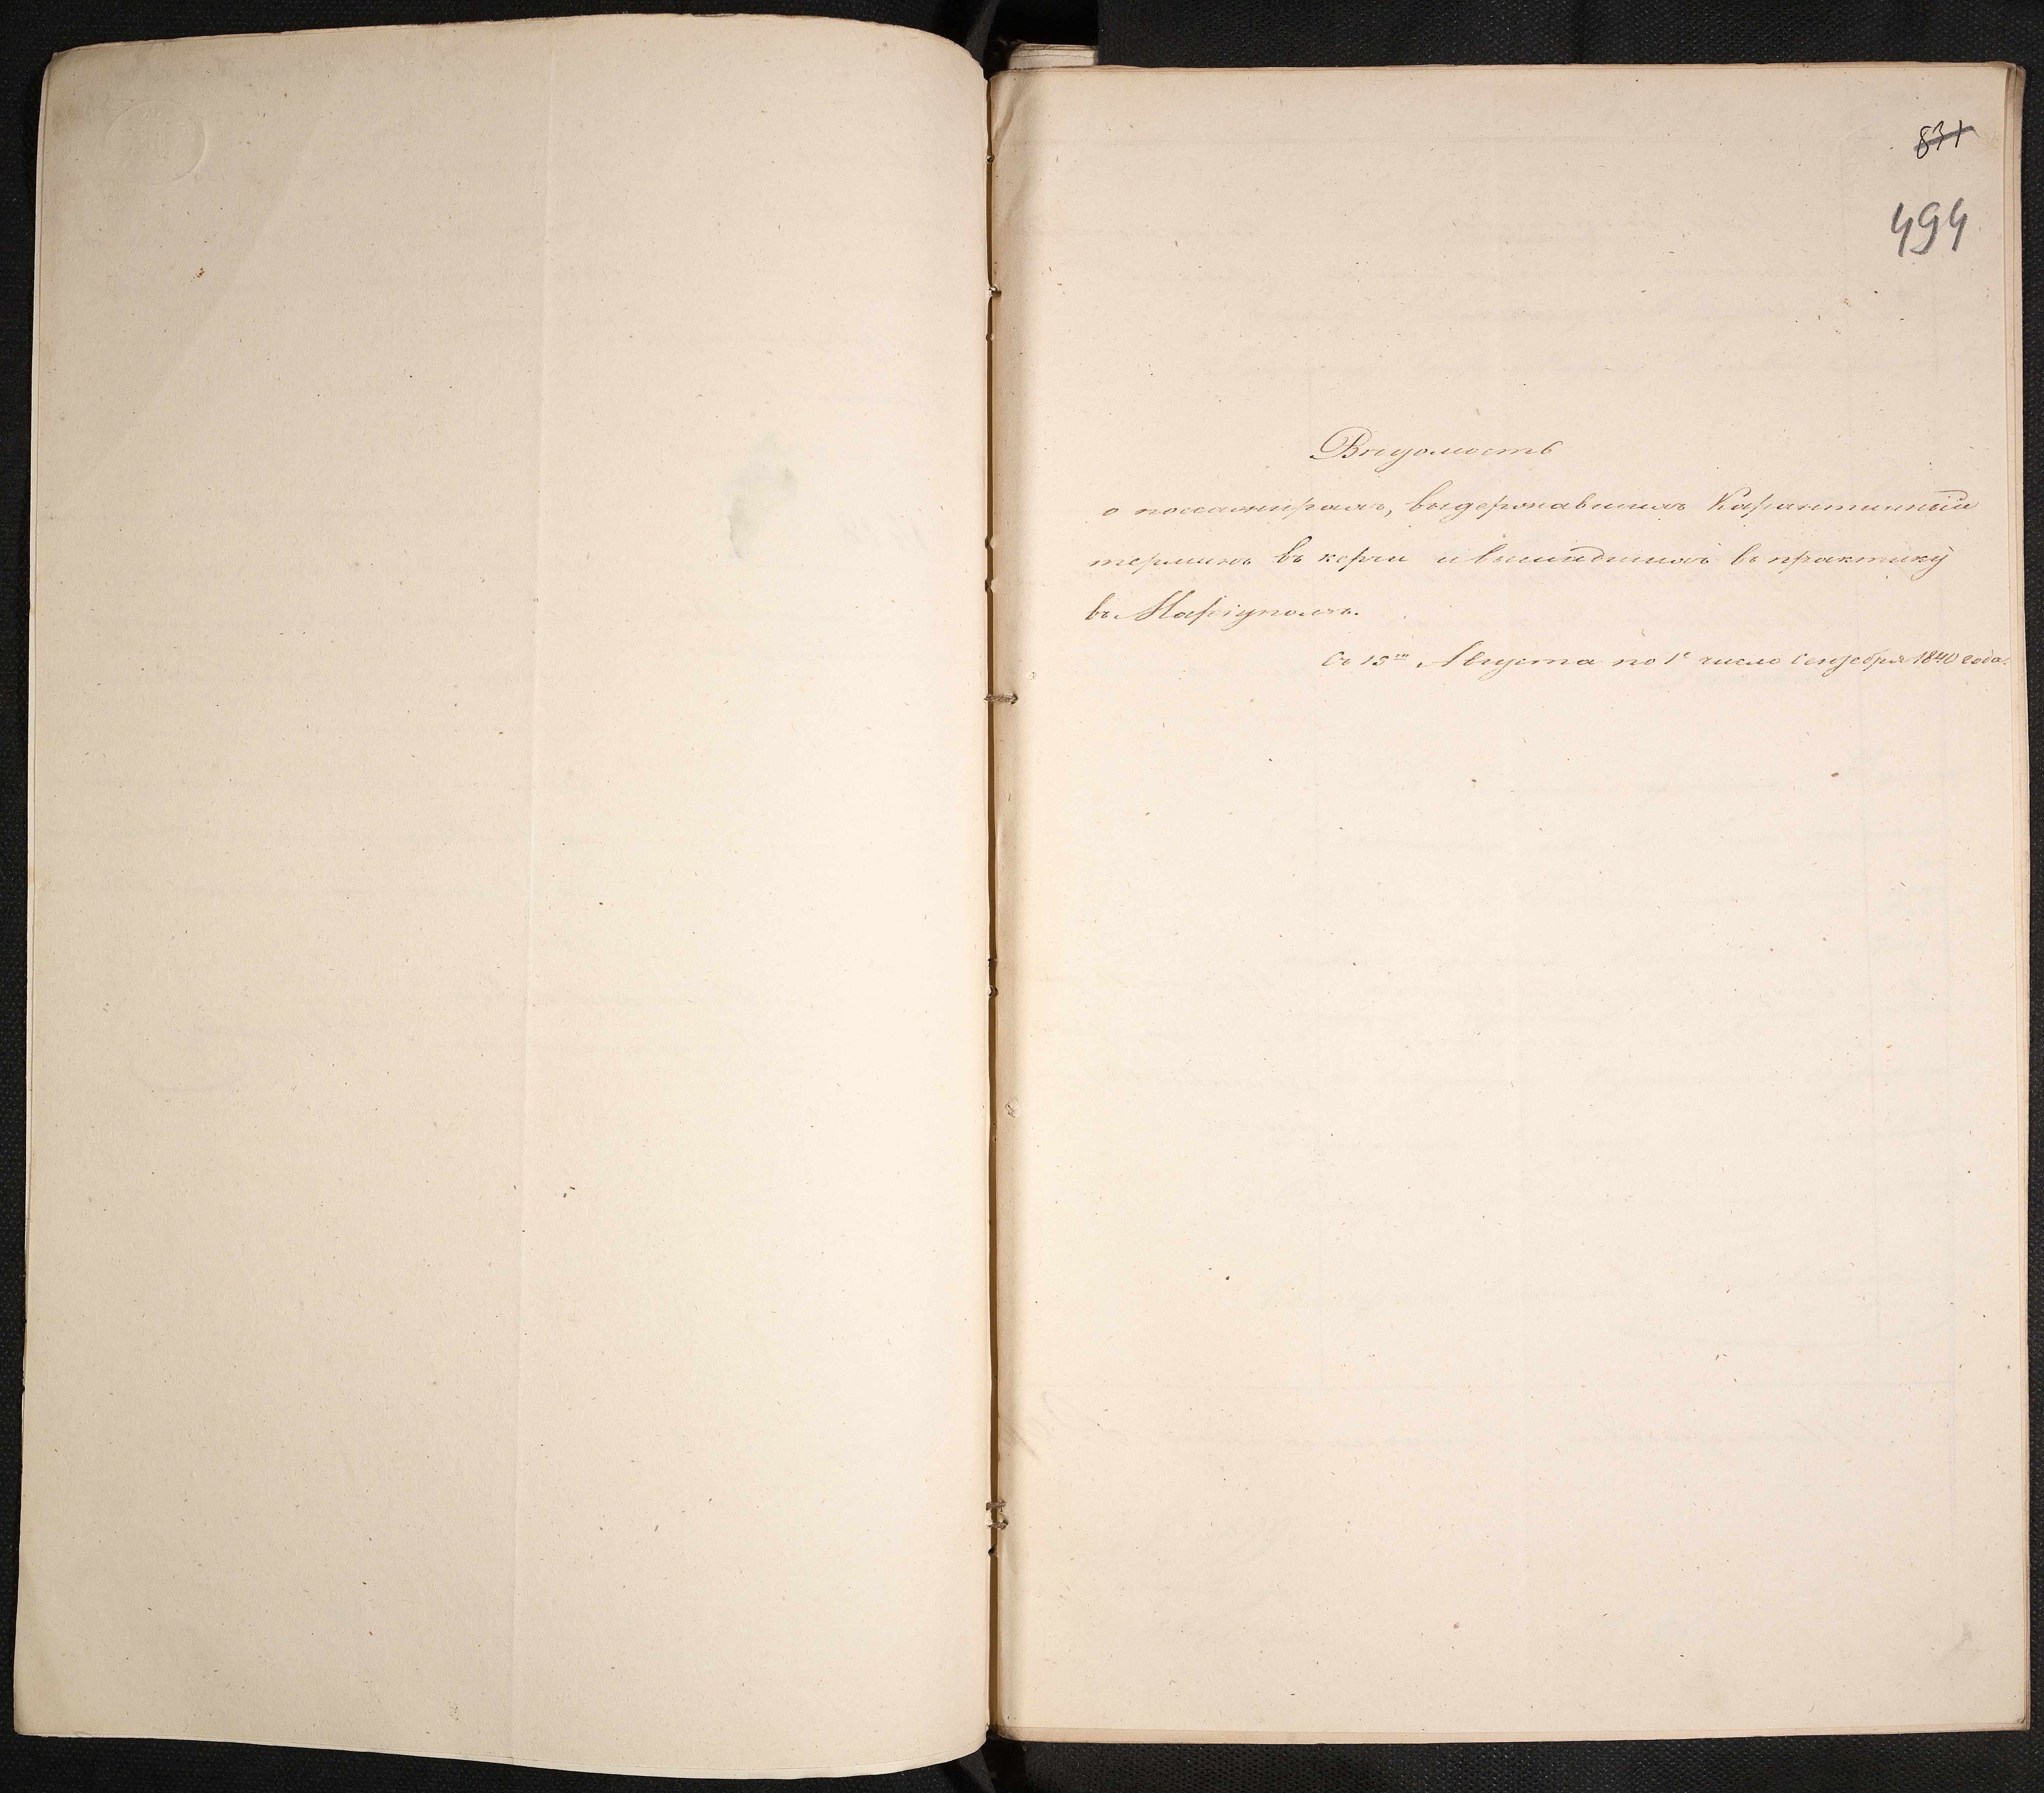 831
494
Вѣдомость
о поссажирахъ, выдержавшихъ Карантинный
терминъ въ керчи и вышедшихъ въ практику
въ Маріуполѣ.
Съ 15го Августа по 1е число Сентебря 1840 года.